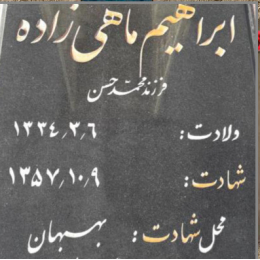 ابراهیم ماهی زاده
فرزند محمدحسن
ولادت: ۱۳۳۴٫۳٫۶
شهادت: ۱۳۵۷٫۱۰٫۹
محل شهادت: بهبهان